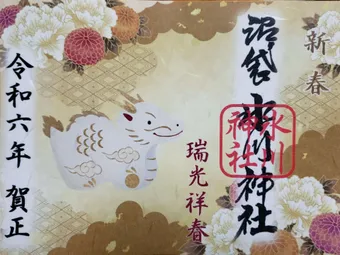 新春
沼袋氷川神社
氷川神社
瑞光祥春
令和六年 賀正